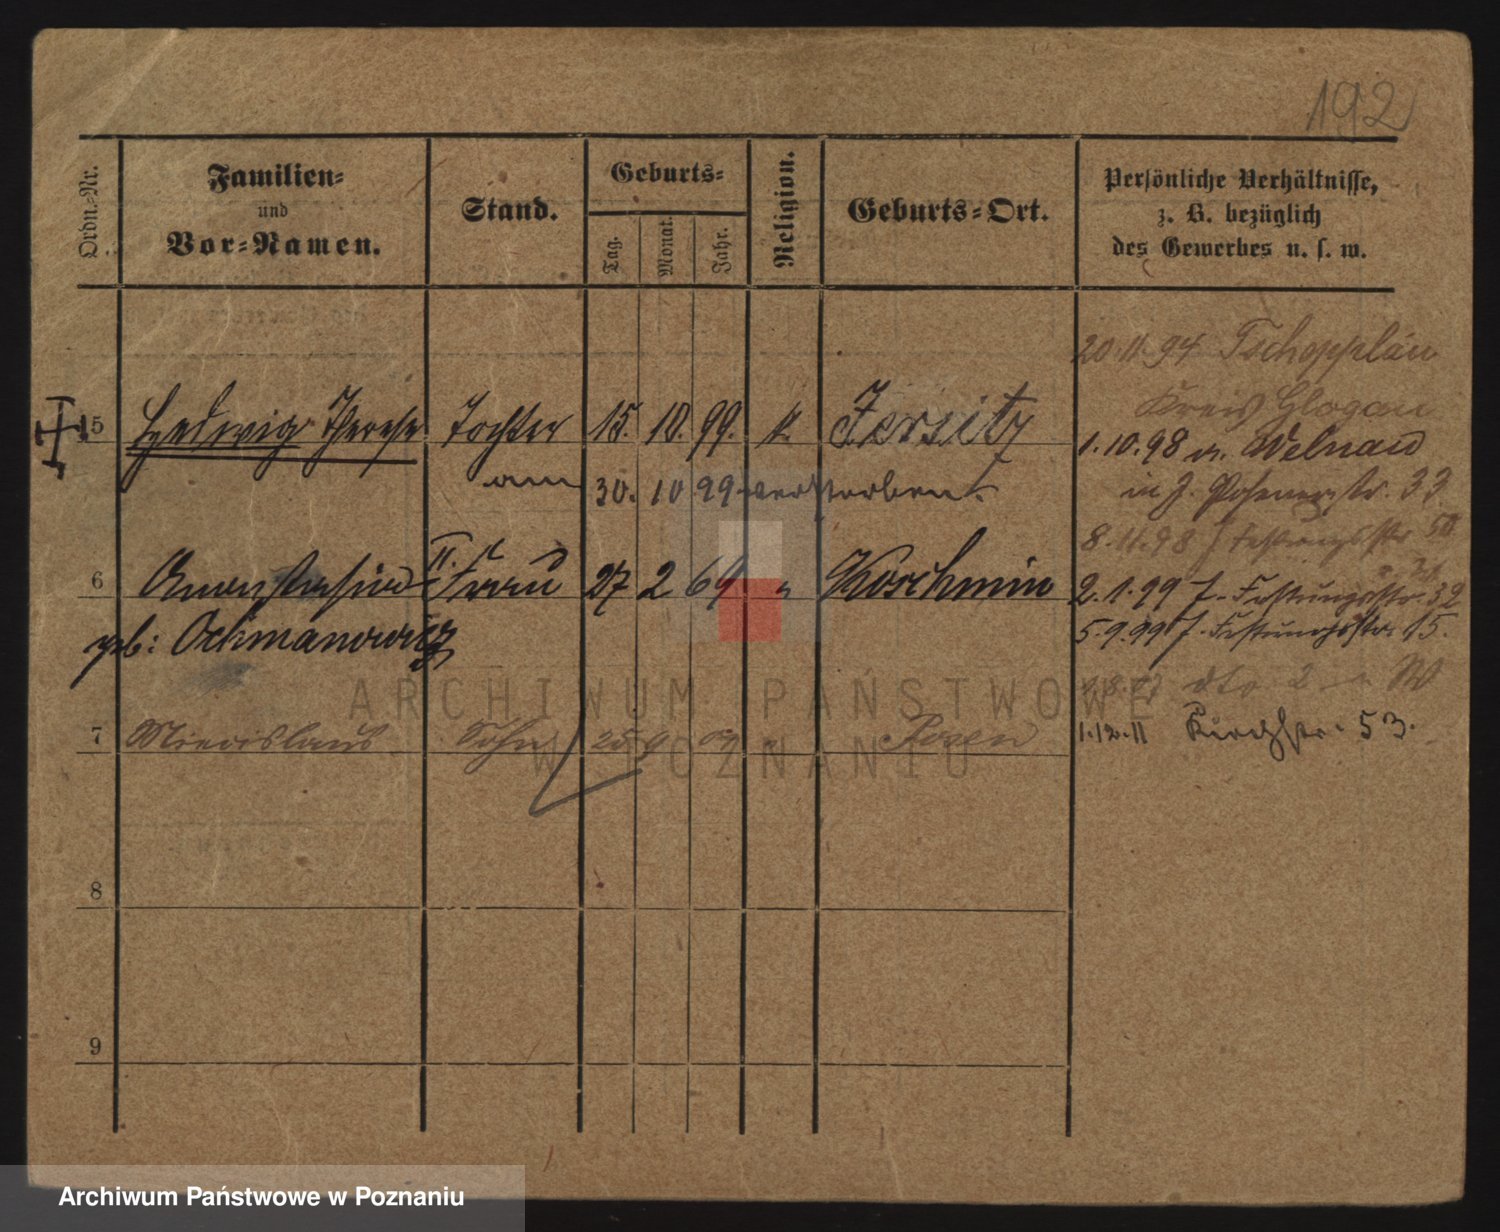 192
Ordn.-Nr.
Familien-
und
Vor-Namen.
Stand.
Geburts-
Tag.
Monat.
Jahr.
Religion.
Geburts-Ort.
Persönliche Verhältnisse,
z. B. bezüglich
des Gewerbes u. s. w.
20.11.94 Tschepplau
Kreis Glogau
5 Hedwig Therese Tochter 15. 10. 99. k. Jersitz
1.10.98 n. Welnau
am 30. 10 99 verstorben.
in J. Posenerstr. 33
8.11.98 J Festungsstr
6 Anastasia II. Frau 27 2 69 " Koschmin
2.1.99 J. Festungsstr. 32
geb: Ochmanowicz
5.9.99 J. Festungsstr. 15.
dto 2
7 Miecislaus Sohn 25 9 09 " Posen
1.12.11 Kirchstr. 53.
8
9
ARCHIWUM PAŃSTWOWE
W POZNANIU
Archiwum Państwowe w Poznaniu